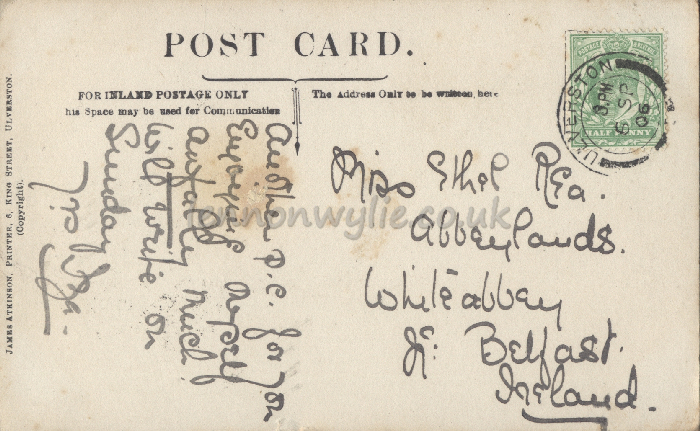 POST CARD.
FOR INLAND POSTAGE ONLY
his Space may be used for Communication
The Address Only to be written, here
JAMES ATKINSON, PRINTER, 5, KING STREET, ULVERSTON.
(Copyright).
ULVERSTON
9 PM
SP 06
HALF PENNY
Another P.C. for you
Enjoying myself
awfully much!
Will write on
Sunday
Miss Ethel Rea.
Abbeylands.
Whiteabbey
Nr. Belfast.
Ireland.
lennonwylie.co.uk